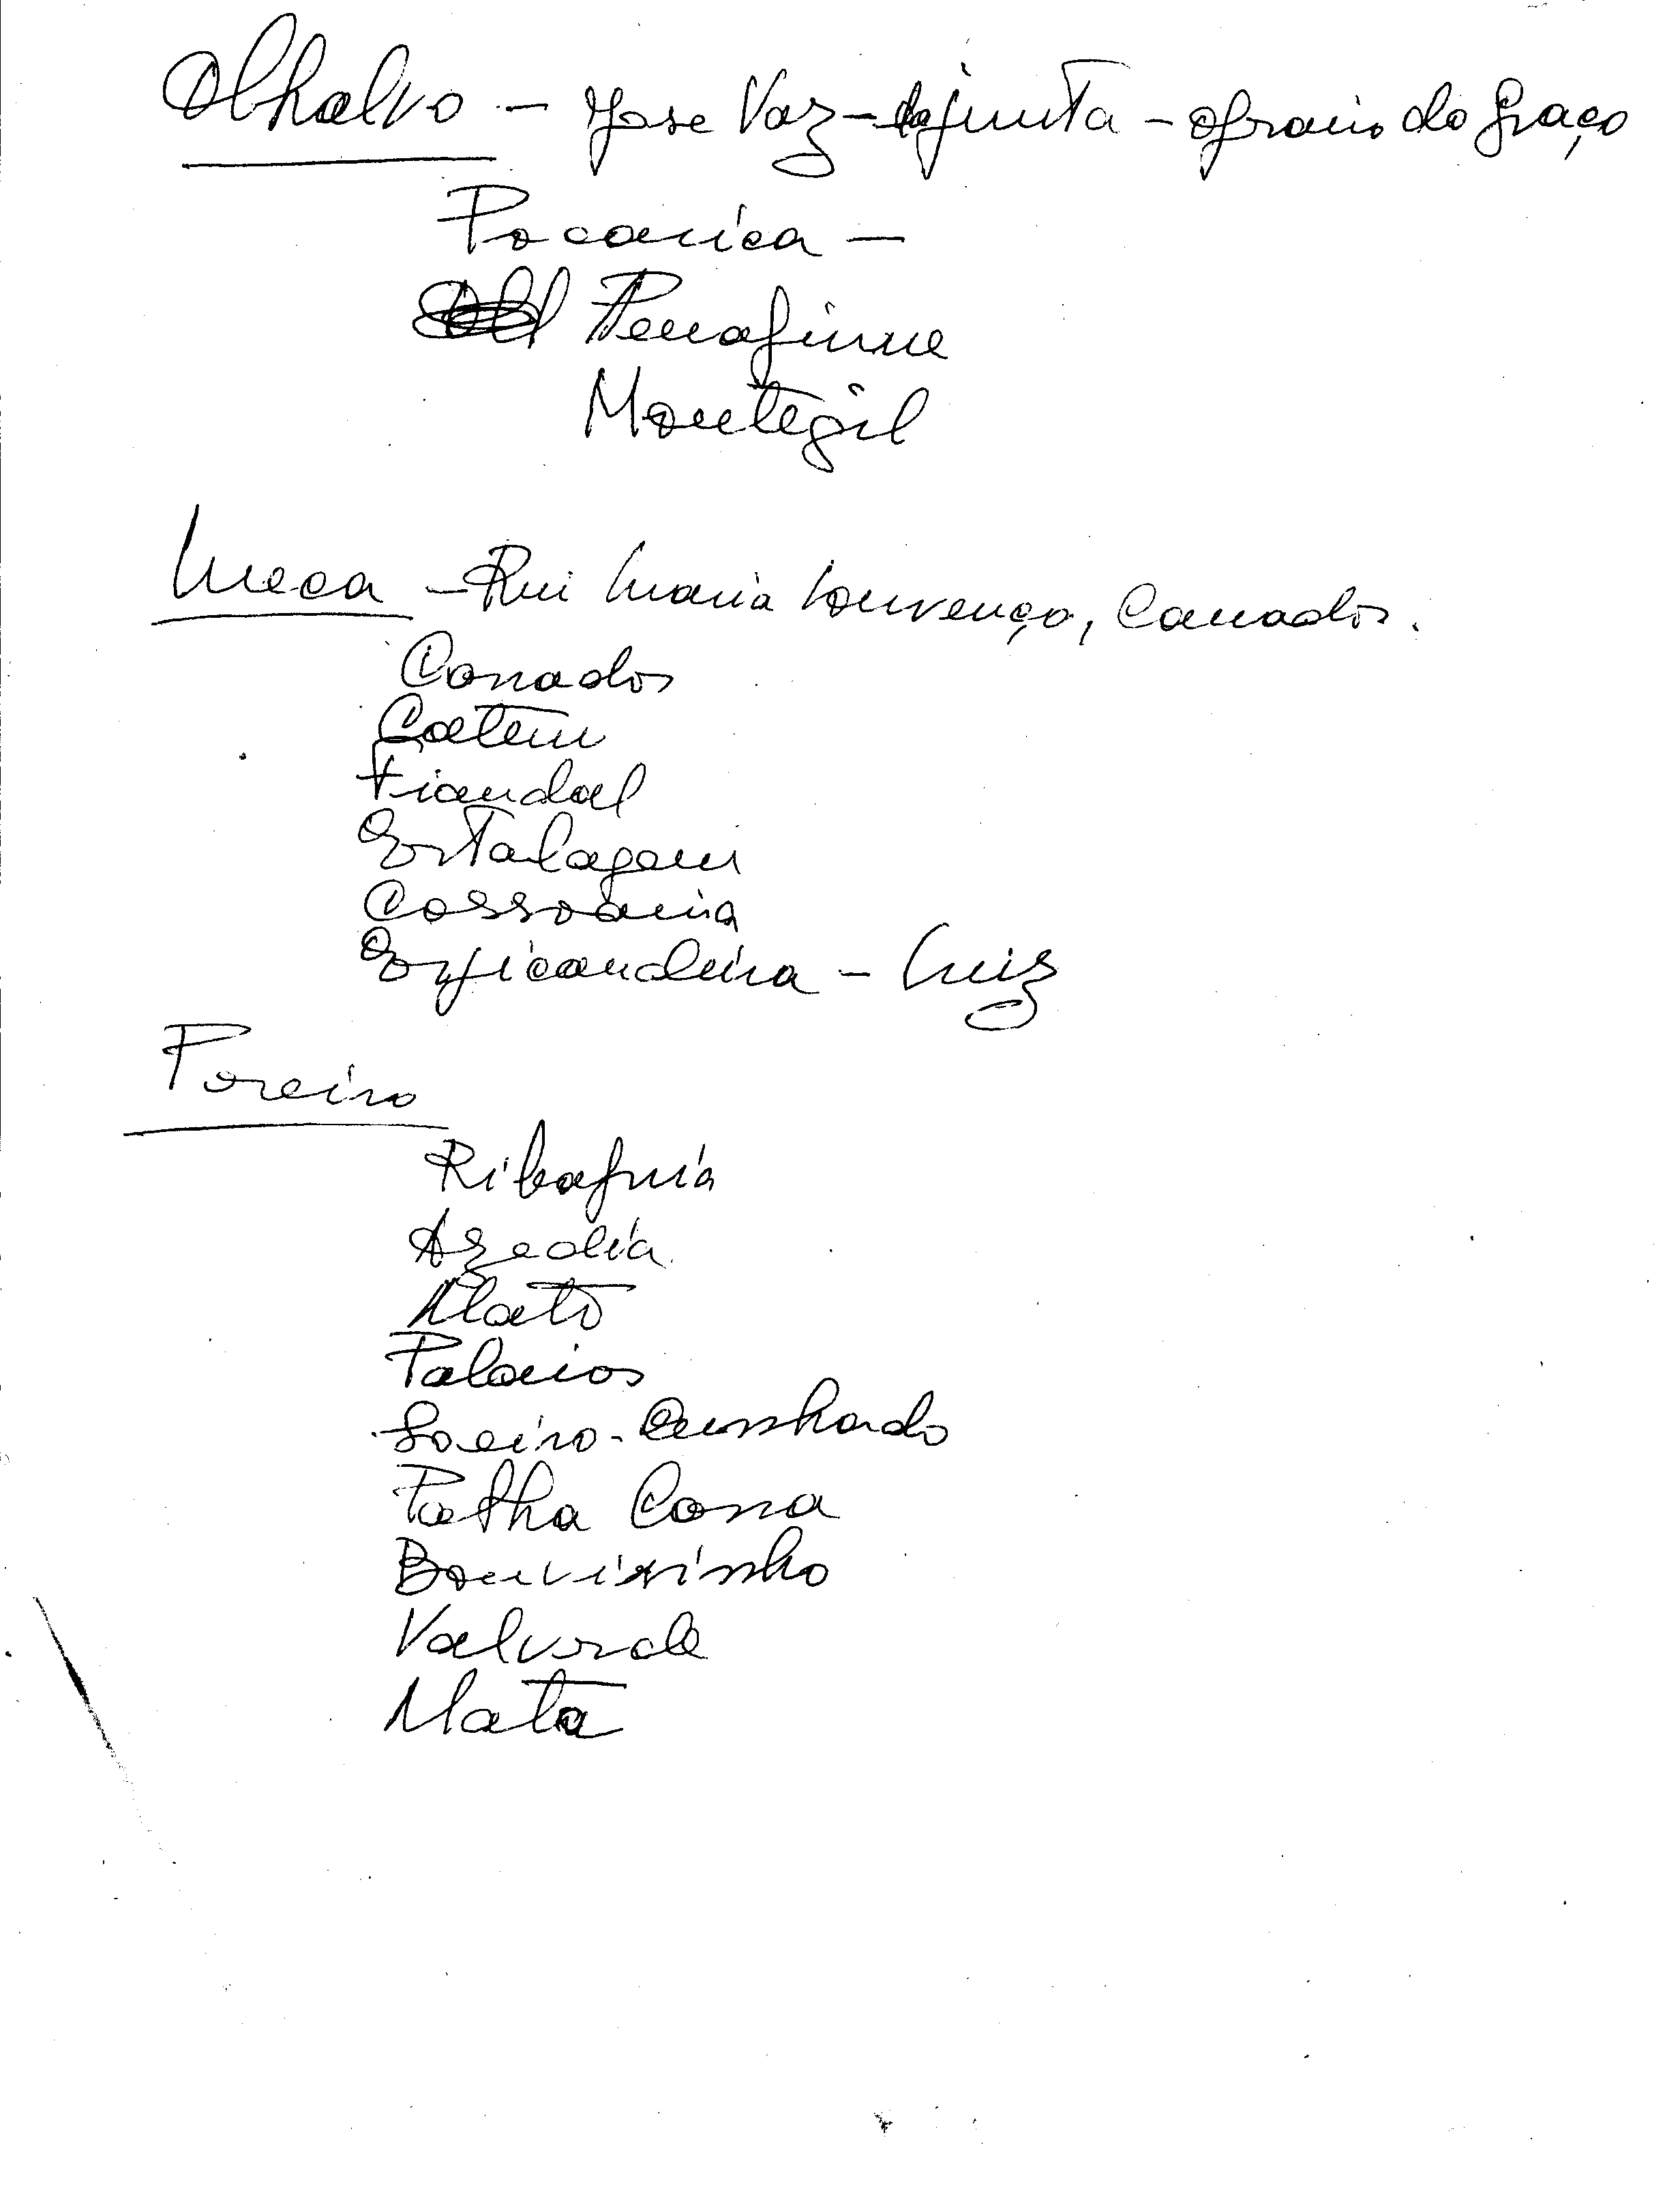 Olhalvo - Jose Vaz - da junta - do Graço
Pocarica -
Penafirme
Montegil
Meca - Rui Maria Lourenço, Canados.
Canados
Catem
Fiandal
Estalagem
Cossoaria
Espicandeira - Luiz
Pereiro
Ribafria
Azedia
Mato
Palaios
Soeiro-Cunhado
Palha Cona
Bonvizinho
Valverde
Mata